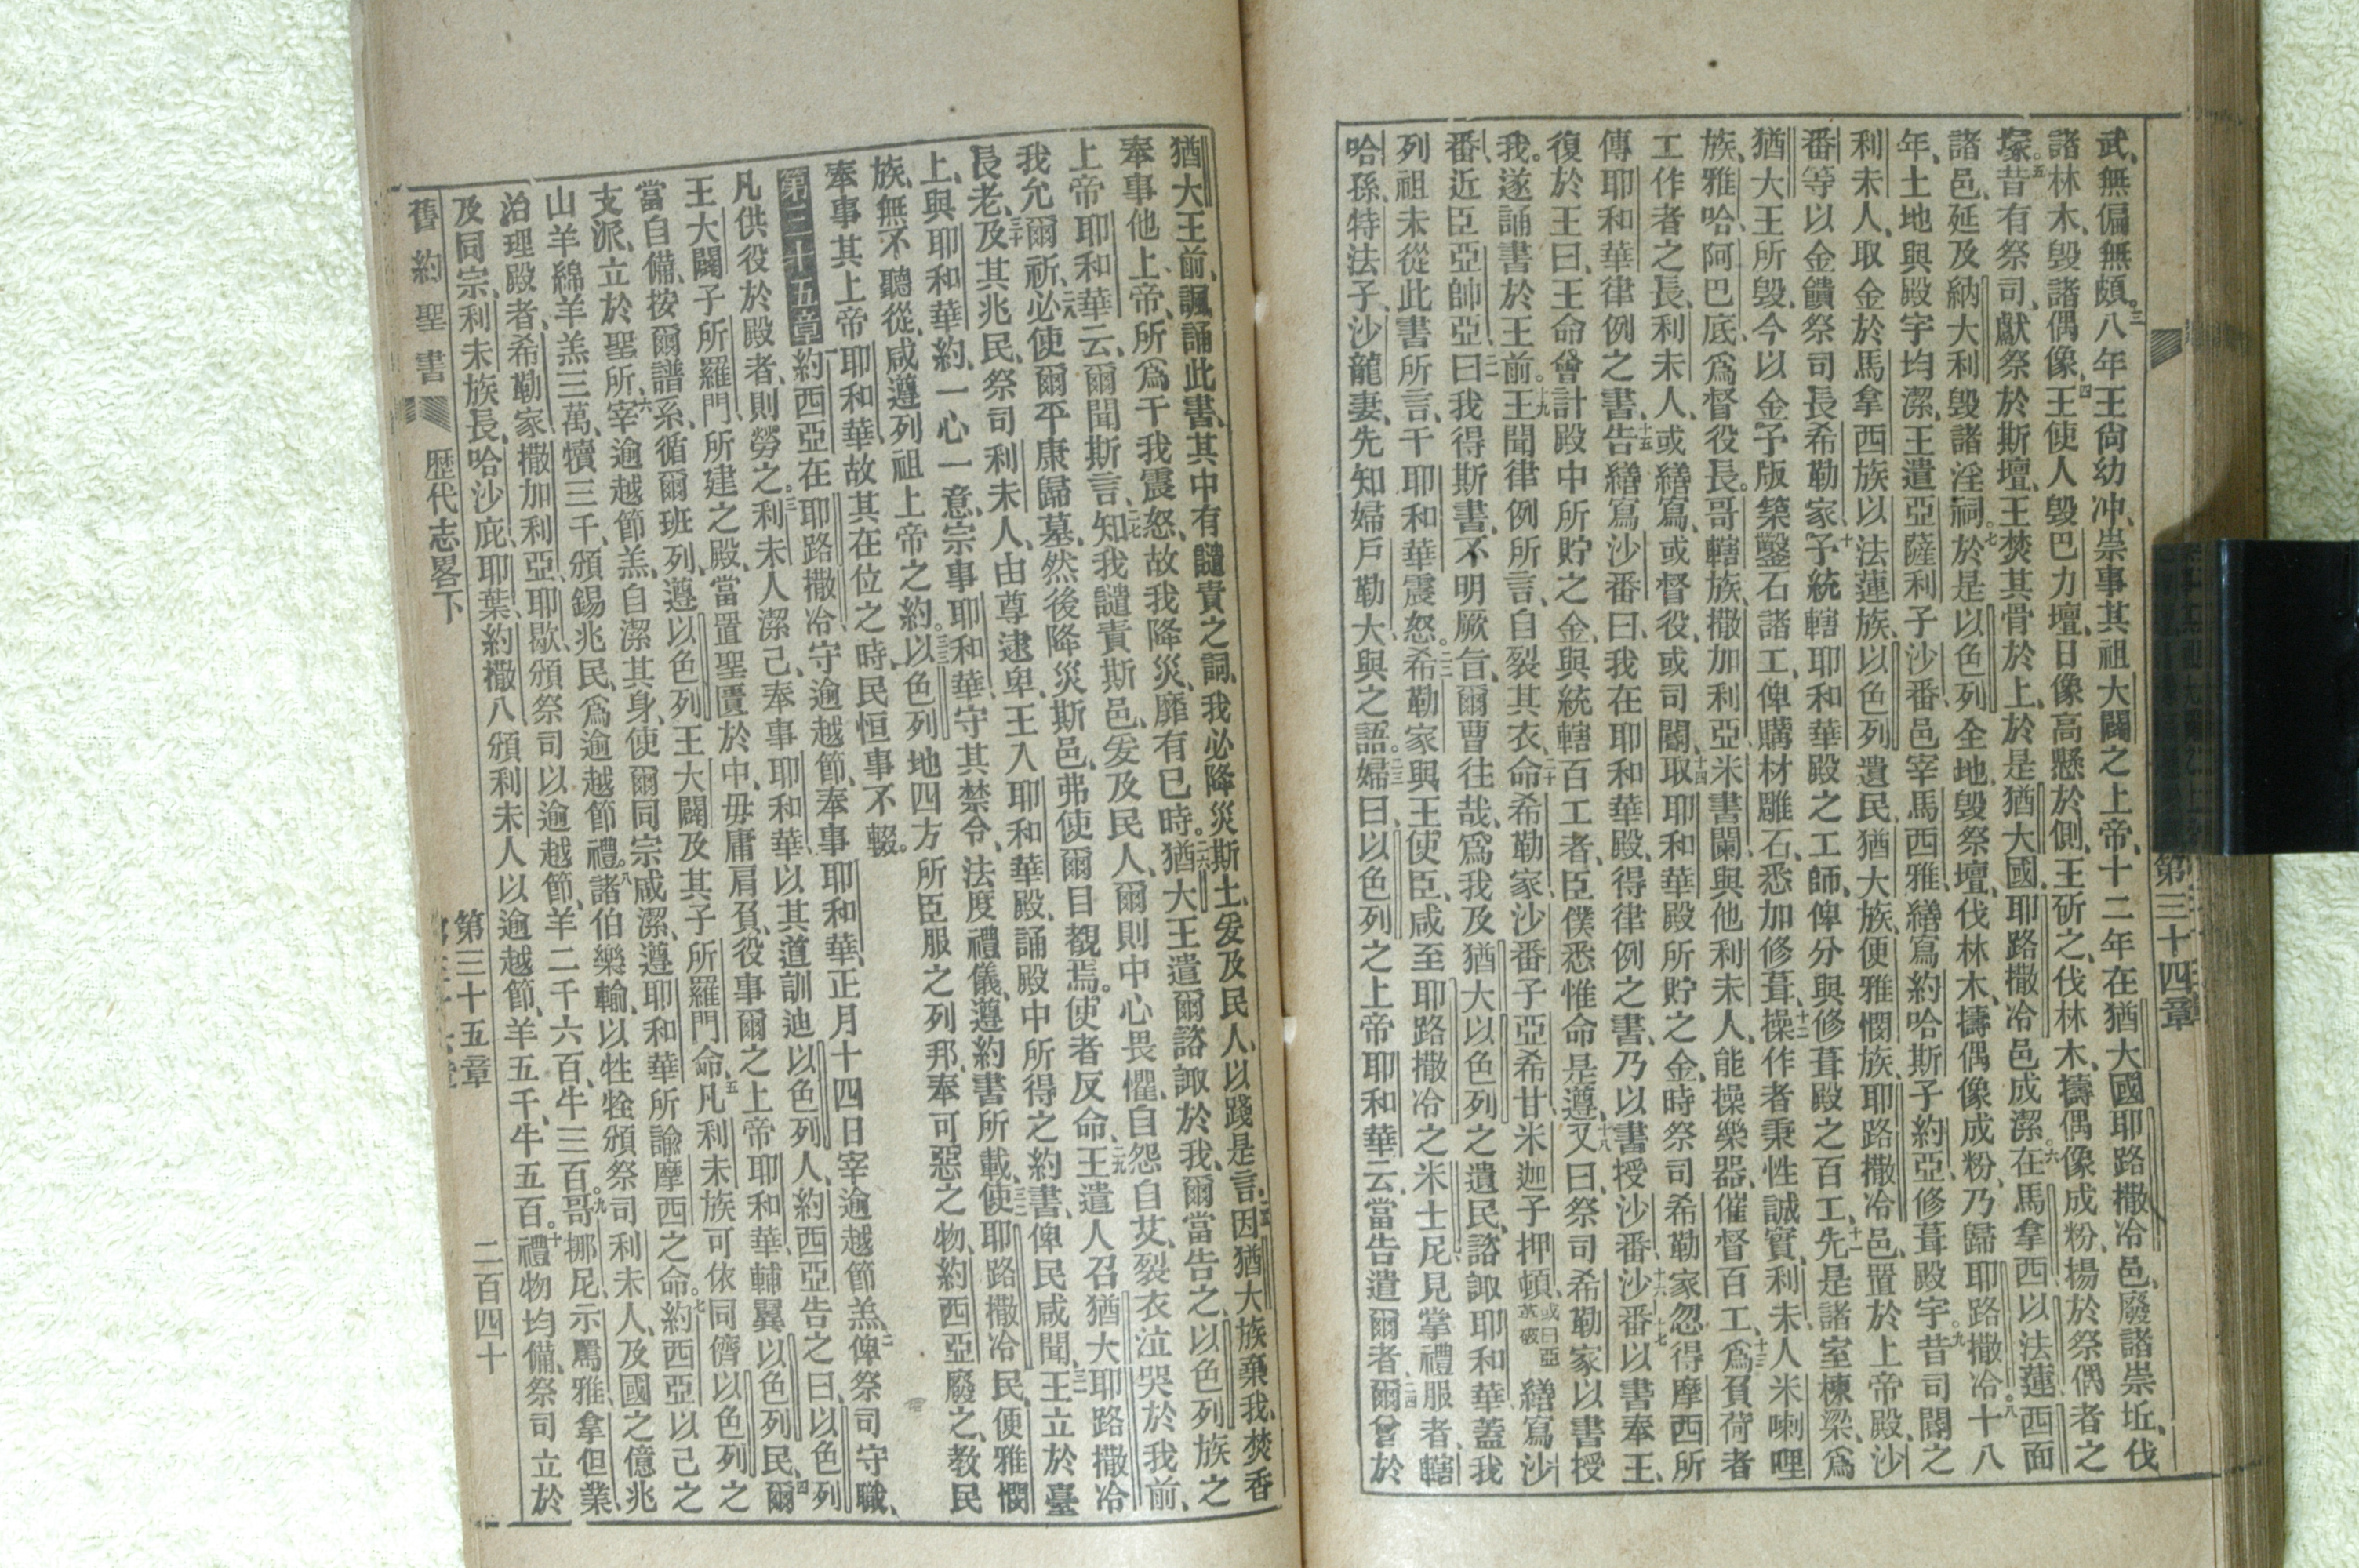 武、無偏無頗。三八年王尙幼冲、崇事其祖大闢之上帝、十二年在猶大國耶路撒冷邑、廢諸崇坵、伐
諸林木、毀諸偶像、四王使人毀巴力壇、日像高懸於側、王斫之、伐林木、擣偶像成粉、揚於祭偶者之
塚。五昔有祭司、獻祭於斯壇、王焚其骨於上、於是猶大國、耶路撒冷邑成潔。六在馬拿西以法蓮、西面
諸邑、延及納大利、毀諸淫祠。七於是以色列全地、毀祭壇、伐林木、擣偶像成粉、乃歸耶路撒冷。八十八
年、土地與殿宇均潔、王遣亞薩利子沙番、邑宰馬西雅、繕寫約哈斯子約亞、修葺殿宇。九昔司閽之
利未人、取金於馬拿西族、以法蓮族、以色列遺民、猶大族、便雅憫族、耶路撒冷邑、置於上帝殿、沙
番等以金饋祭司長希勒家、十予統轄耶和華殿之工師、俾分與修葺殿之百工、十一先是諸室棟梁、爲
猶大王所毀、今以金予版築鑿石諸工、俾購材雕石、悉加修葺、十二操作者秉性誠實、利未人米喇哩
族、雅哈、阿巴底、爲督役長。哥轄族、撒加利亞、米書闌、與他利未人、能操樂器、催督百工、十三爲負荷者
工作者之長、利未人、或繕寫、或督役、或司閽、十四取耶和華殿所貯之金、時祭司希勒家、忽得摩西所
傳耶和華律例之書、十五告繕寫沙番曰、我在耶和華殿、得律例之書、乃以書授沙番、十六沙番以書奉王、
復於王曰、王命曾計殿中所貯之金、與統轄百工者、臣僕悉惟命是遵、十八又曰、祭司希勒家以書授
我。遂誦書於王前。十九王聞律例所言、自裂其衣、二十命希勒家、沙番子亞希甘、米迦子押頓、或曰亞革破繕寫沙
番、近臣亞帥亞曰、二一我得斯書、不明厥旨、爾曹往哉、爲我及猶大以色列之遺民、諮諏耶和華、蓋我
列祖未從此書所言、干耶和華震怒。二二希勒家與王使臣、咸至耶路撒冷之米士尼、見掌禮服者、轄
哈孫、特法子、沙龍妻、先知婦戶勒大、與之語。二三婦曰、以色列之上帝耶和華云、當告遣爾者、二四爾曾於
第三十四章
猶大王前、諷誦此書、其中有譴責之詞、我必降災斯土、爰及民人、以踐是言、二五因猶大族棄我、焚香
奉事他上帝、所爲干我震怒、故我降災、靡有已時。二六猶大王遣爾諮諏於我、爾當告之、以色列族之
上帝耶和華云、爾聞斯言、二七知我譴責斯邑、爰及民人、爾則中心畏懼、自怨自艾、裂衣泣哭於我前、
我允爾祈、二八必使爾平康歸墓、然後降災斯邑、弗使爾目覩焉。使者反命、二九王遣人召猶大耶路撒冷
長老、三十及其兆民、祭司利未人、由尊逮卑、王入耶和華殿、誦殿中所得之約書、俾民咸聞、三一王立於臺
上、與耶和華約、一心一意、宗事耶和華、守其禁令、法度禮儀、遵約書所載、三二使耶路撒冷民、便雅憫
族、無不聽從、咸遵列祖上帝之約。三三以色列地四方、所臣服之列邦、奉可惡之物、約西亞廢之、教民
奉事其上帝耶和華、故其在位之時、民恒事不輟。
第三十五章 約西亞在耶路撒冷、守逾越節、奉事耶和華、正月十四日宰逾越節羔、二俾祭司守職、
凡供役於殿者、則勞之。三利未人潔己、奉事耶和華、以其道訓迪以色列人、約西亞告之曰、以色列
王大闢子所羅門、所建之殿、當置聖匱於中、毋庸肩負、役事爾之上帝耶和華、輔翼以色列民、四爾
當自備、按爾譜系、循爾班列、遵以色列王大闢及其子所羅門命、五凡利未族可依同儕以色列之
支派、立於聖所、六宰逾越節羔、自潔其身、使爾同宗咸潔、遵耶和華所諭摩西之命。七約西亞以己之
山羊綿羊羔三萬、犢三千、頒錫兆民、爲逾越節禮。八諸伯樂輸、以牲牷頒祭司利未人、及國之億兆
治理殿者、希勒家、撒加利亞、耶歇、頒祭司以逾越節、羊二千六百、牛三百。九哥挪尼、示罵雅、拿但業、
及同宗、利未族長、哈沙庇、耶葉、約撒八、頒利未人以逾越節、羊五千、牛五百。十禮物均備、祭司立於
舊約聖書 歷代志畧下 第三十五章 二百四十